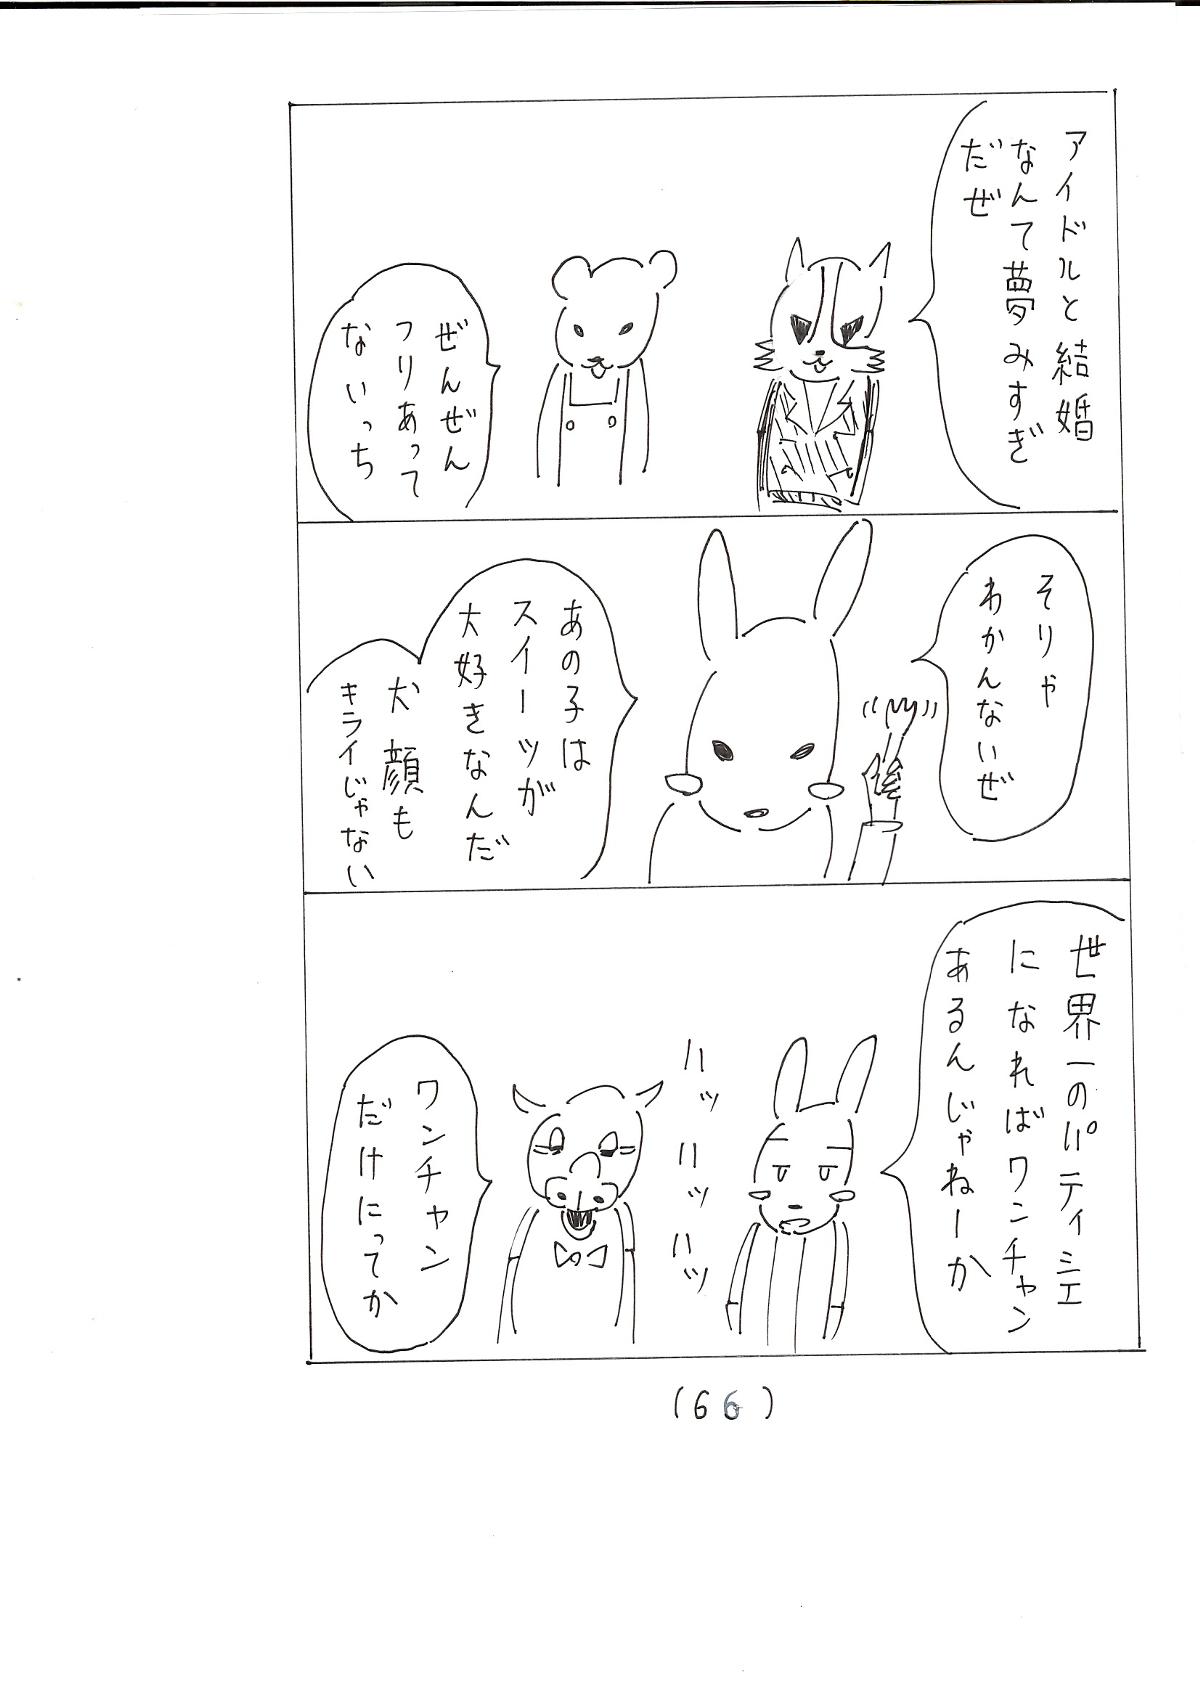 アイドルと結婚
なんて夢みすぎ
だぜ
ぜんぜん
つりあって
ないっち
そりゃ
わかんないぜ
あの子は
スイーツが
大好きなんだ
犬顔も
キライじゃない
世界一のパティシエ
になればワンチャン
あるんじゃねーか
ハッハッハッ
ワンチャン
だけにってか
(66)